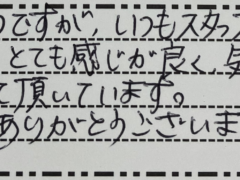 のですが、いつもスタッフ
とても感じが良く、気
て頂いています。
ありがとうございま